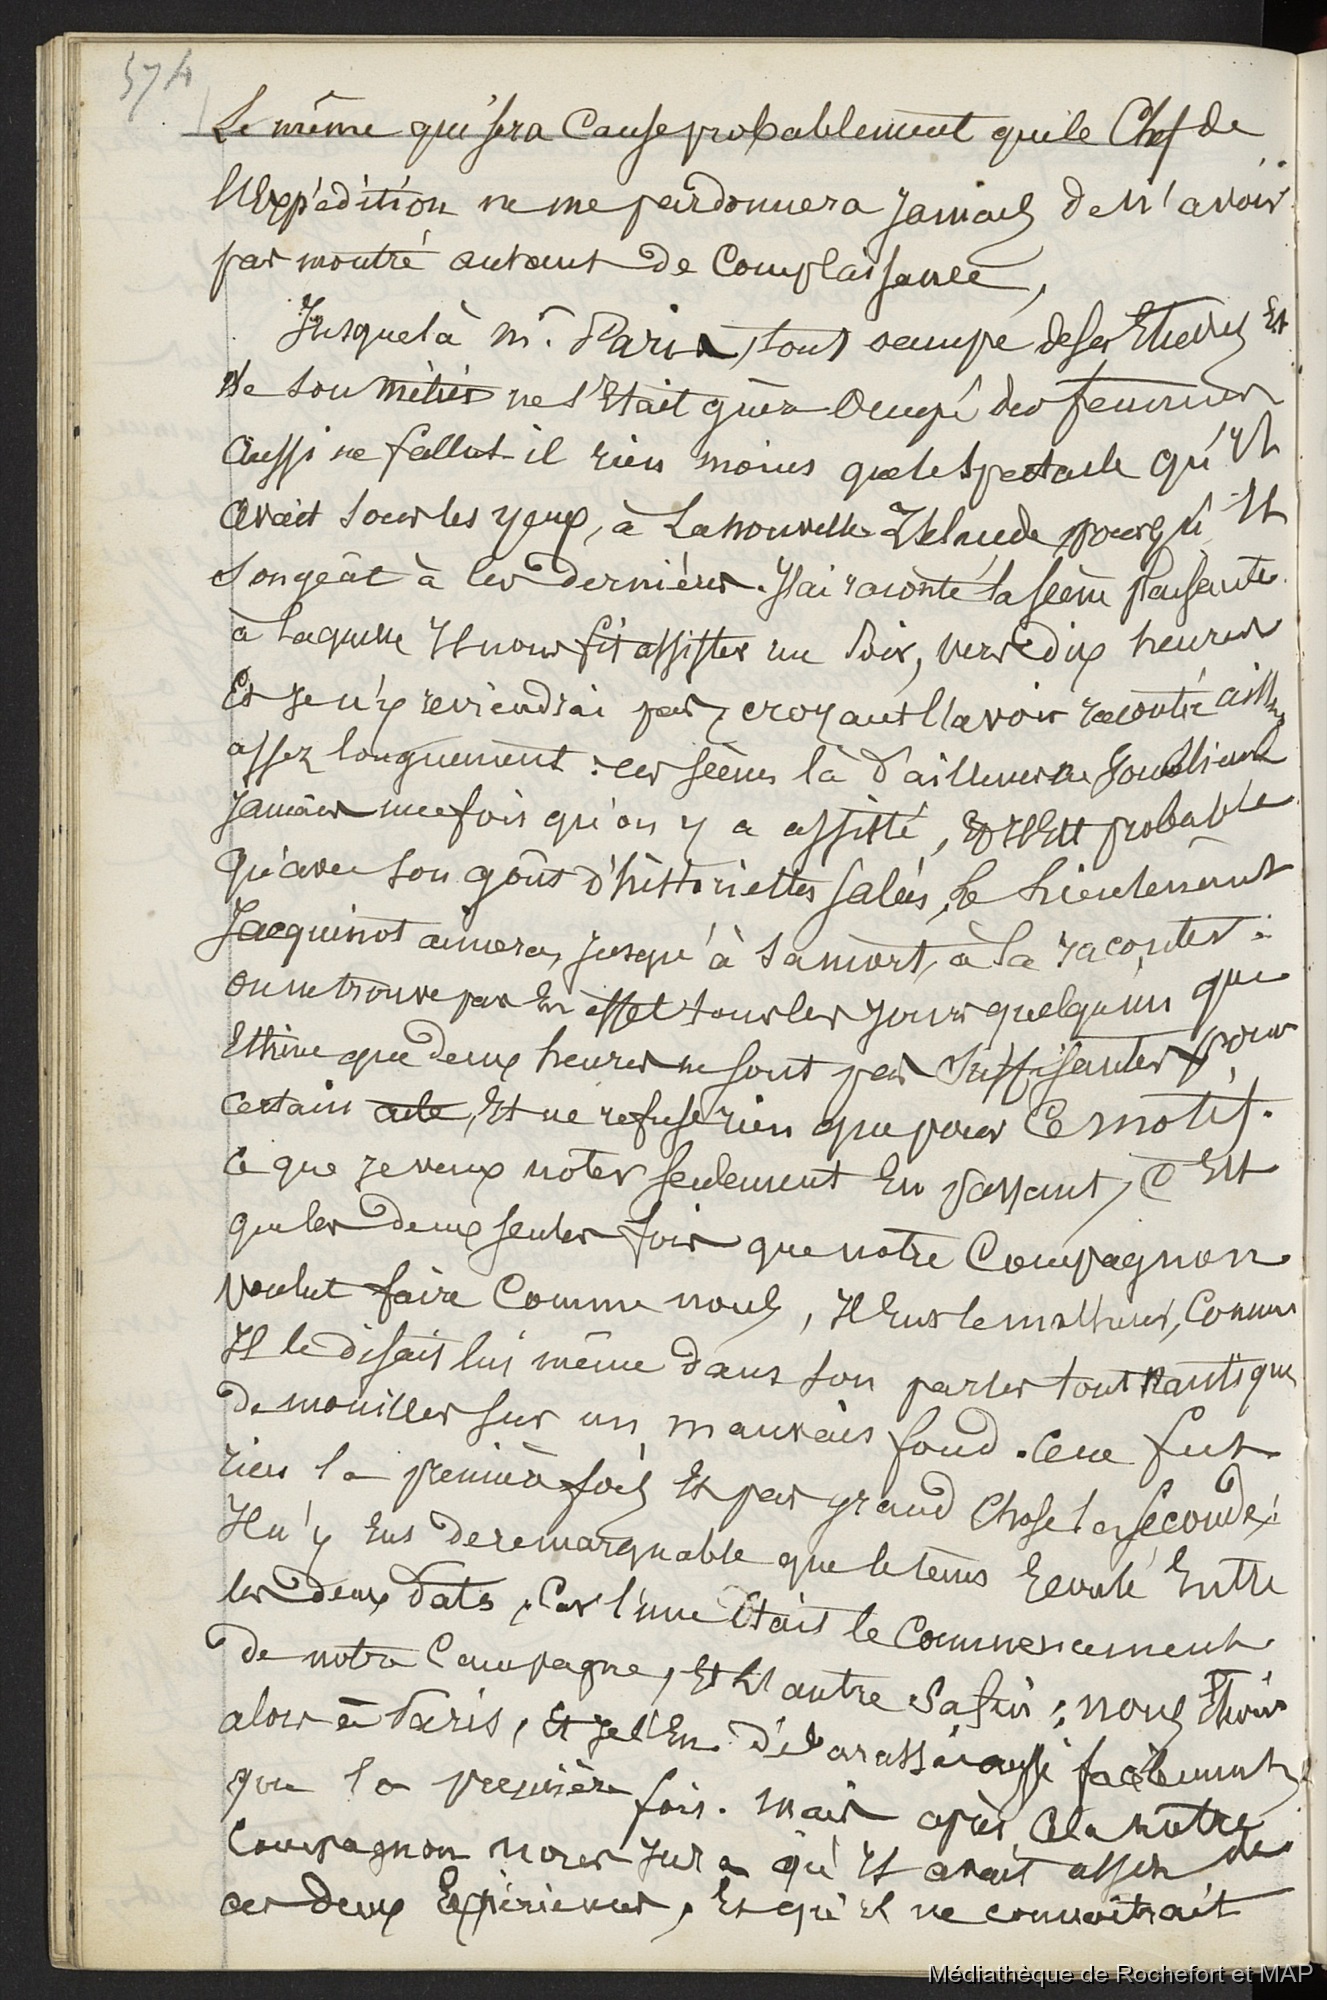 574
Le même qui sera Cause probablement que le Chef de
l'Expédition ne me pardonnera Jamais de N'avoir
pas montré autant de Complaisance,
Jusque là Mr. Paris, tout occupé de ses Etudes Et
de son métier ne s'Etait guère Occupé des femmes
Aussi ne fallut il rien moins que le Spectacle qu'Il
Avait sous les yeux, à La nouvelle Zélande pour qu'Il
Songeât à ces dernières. J'ai raconté la scène plaisante
à laquelle Il nous fit assister un Soir, vers dix heures
Et Je n'y reviendrai pas, croyant l'avoir racontée aill
assez longuement : ces scènes là d'ailleurs ne s'oublient
Jamais une fois qu'on y a assisté, Et Il Est probable
Qu'avec son goût d'historiettes salées, le Lieutenant
Jacquinot aimera, jusqu'à sa mort, à la raconter :
On ne trouve pas En effet tous les jours quelqu'un que
Estime que deux heures ne sont pas suffisantes pour
Certain acte, Et ne refuse rien que pour Ce motif.
Ce que Je veux noter seulement En passant, C'Est
que les deux seules fois que notre Compagnon
voulut faire Comme nous, Il Eut le malheur, Comme
Il le disait lui même dans son parler tout Nautique
De mouiller sur un mauvais fond. Ce ne fut
rien la première fois Et pas grand Chose la Seconde;
Il n'y Eut de remarquable que le tems Ecoulé Entre
les deux dates, Car l'une Etait le Commencement
de notre Campagne, Et l'autre sa fin ; nous Etions
alors à Paris, Et Je l'En débarassai aussi facilement
que la première fois. Mais après Cela notre
Compagnon nous Jura qu'Il avait assez de
ces deux Expériences, Et qu'il ne connoitrait
Médiathèque de Rochefort et MAP